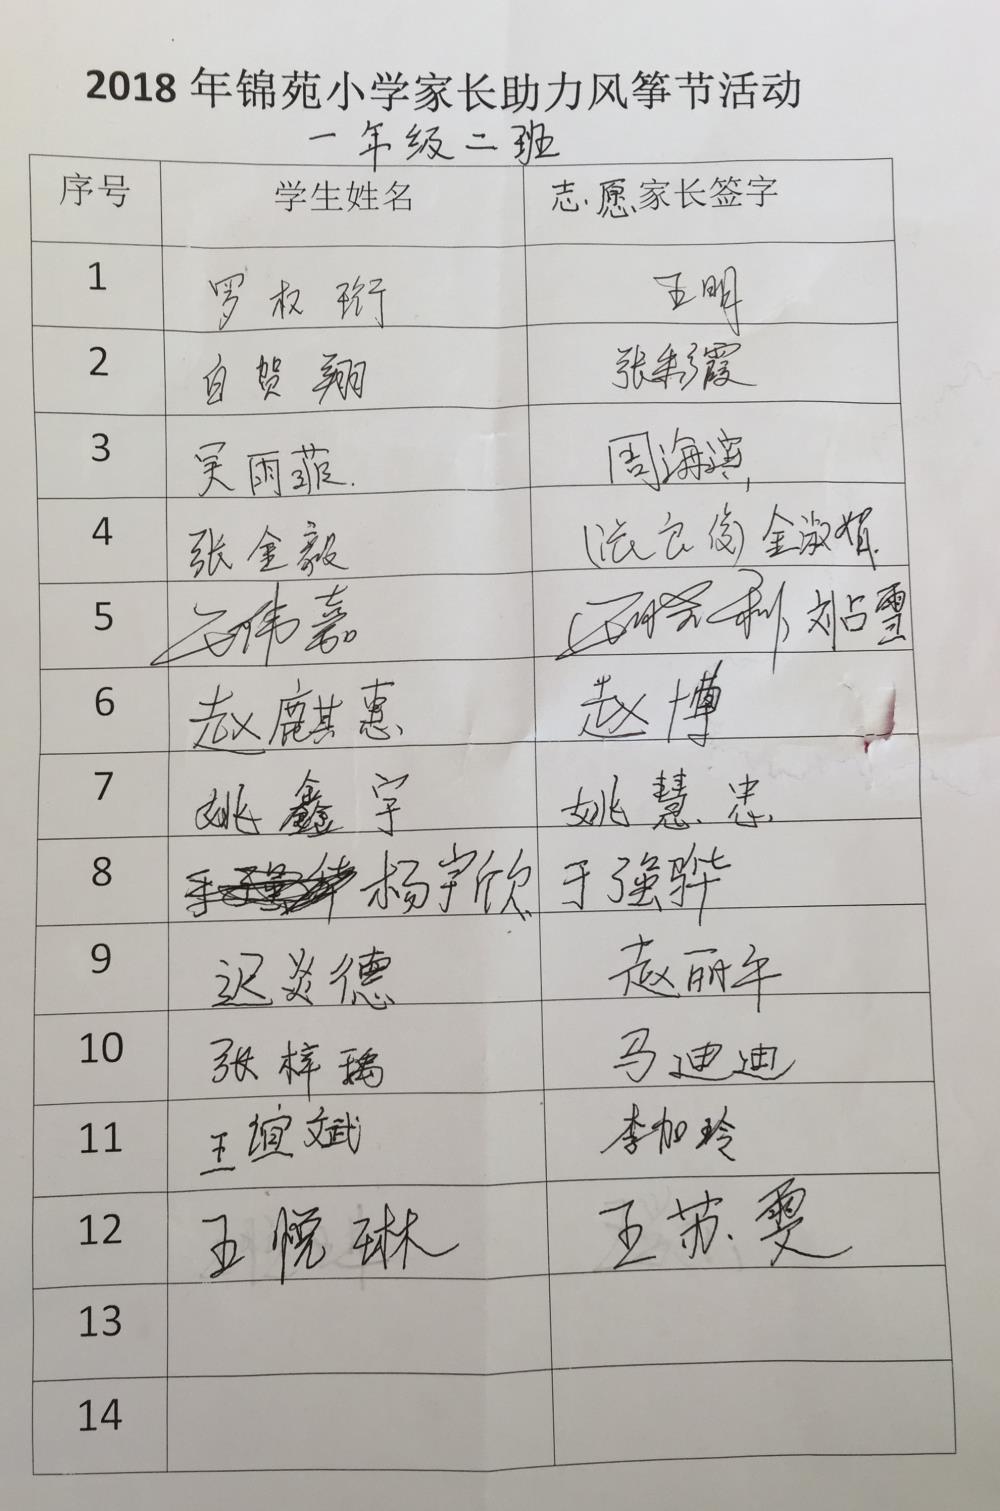 2018 年锦苑小学家长助力风筝节活动
一年级二班
序号 学生姓名 志愿家长签字
1 罗权珩 王明
2 自贺翔 张彩霞
3 吴雨菲. 周海滨
4 张金毅 (张立俊) 金淑娟
5 石伟嘉 石晓利 刘占云
6 赵麒惠 赵博
7 姚鑫宇 姚慧忠
8 杨宇欣 于强骅
9 迟炎德 赵丽午
10 张梓瑀 马迪迪
11 王谊斌 李加玲
12 王悦琳 王苏雯
13
14